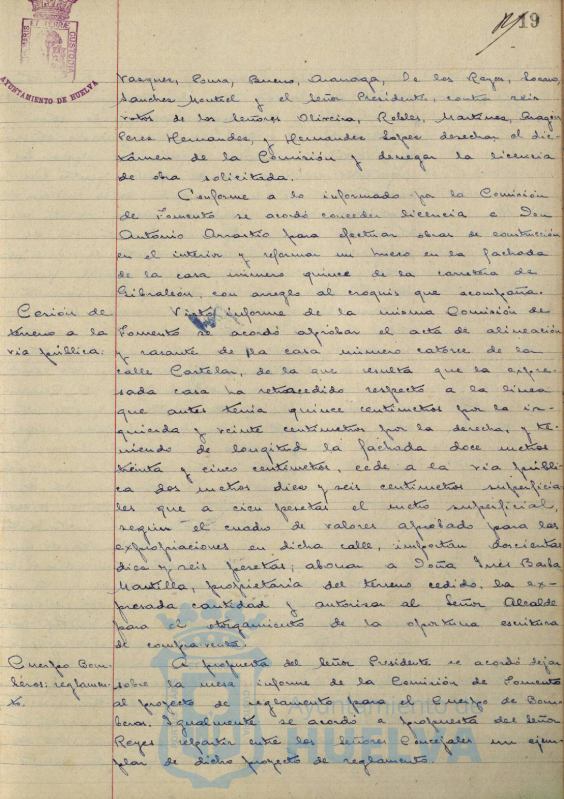 19
AYUNTAMIENTO DE HUELVA
Vazquez, Poma, Bueno, Aranaga, De los Reyes, Lozano,
Sanchez Montiel y el Señor Presidente, contra seis
votos de los Señores Oliveira, Robles, Martinez, Aragon
Perez Hernandez, y Hernandez Lopez desechar el dic-
támen de la Comisión y denegar la licencia
de obra solicitada.
Conforme a lo informado por la Comisión
de Fomento se acordó conceder licencia a Don
Antonio para efectuar obras de construcción
en el interior y reformar un hueco en la fachada
de la casa número quince de la carretera de
Gibraleón, con arreglo al croquis que acompaña.
Cesión de
terreno a la
via pública.
Visto informe de la misma Comisión de
Fomento se acordó aprobar el acta de alineación
y rasante de la casa número catorce de la
calle Castelar, de la que resulta que la expre-
sada casa ha retrocedido respecto a la linea
que antes tenia quince centimetros por la iz-
quierda y veinte centimetros por la derecha, y te-
niendo de longitud la fachada doce metros
treinta y cinco centimetros, cede a la via públi-
ca dos metros diez y seis centimetros superficia-
les que a cien pesetas el metro superficial,
según el cuadro de valores aprobado para las
expropiaciones en dicha calle, importan doscientas
diez y seis pesetas; abonar a Doña Inés Barba
Mantilla, propietaria del terreno cedido, la ex-
presada cantidad y autorizar al Señor Alcalde
para el otorgamiento de la oportuna escritura
de compraventa.
Cuerpo Bom-
beros: reglamen-
to.
A propuesta del Señor Presidente se acordó dejar
sobre la mesa informe de la Comisión de Fomento
al proyecto de reglamento para el Cuerpo de Bom-
beros. Igualmente se acordó a propuesta del Señor
Reyes repartir entre los Señores Concejales un ejem-
plar de dicho proyecto de reglamento.
Ayuntamiento de
HUELVA